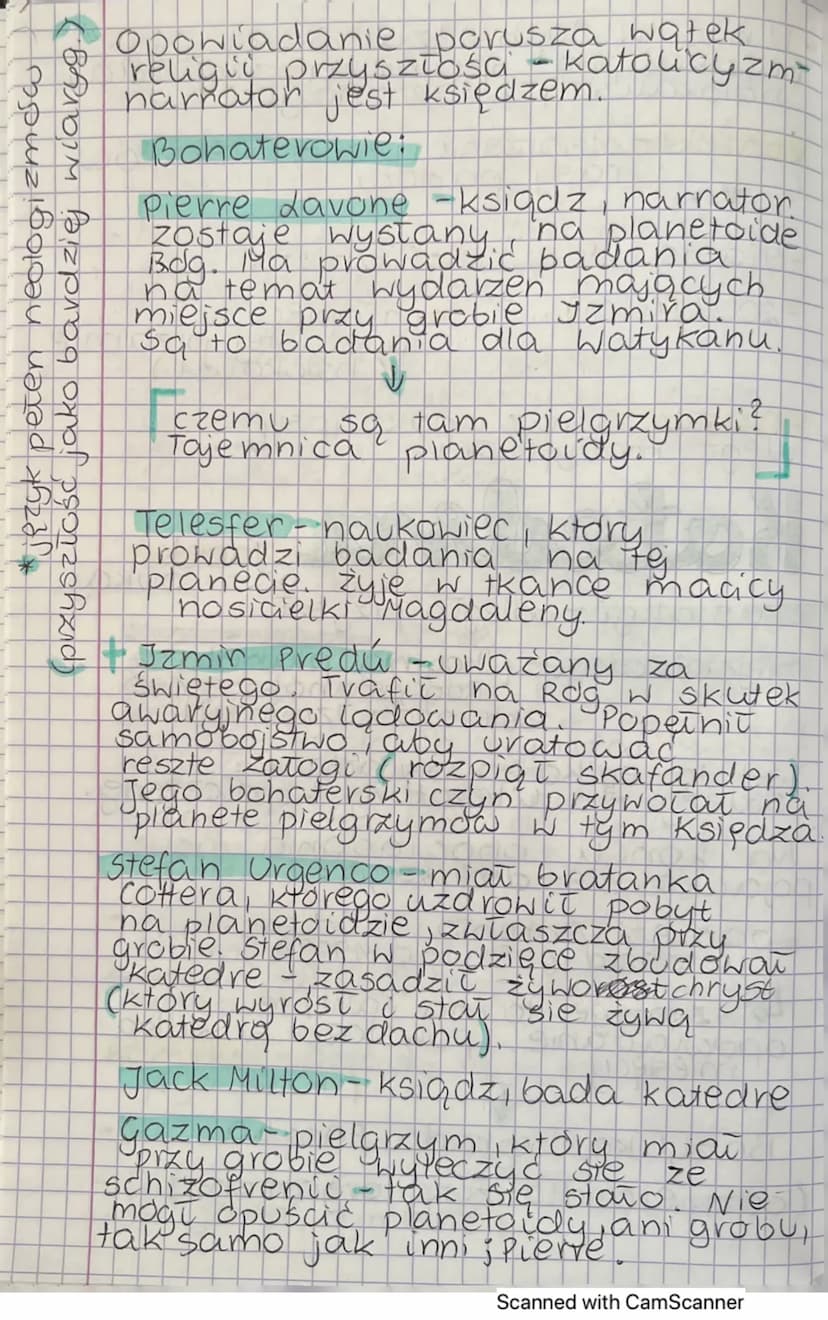 Opowiadanie porusza wątek
religii przyszłości - katolicyzm -
narrator jest księdzem.
Bohaterowie:
Pierre Lavone - ksiądz, narrator.
zostaje wysłany, na planetoidę
Rdg. Ma prowadzić badania
na temat wydarzeń mających
miejsce przy grobie Izmira.
Są to badania dla Watykanu.
↓
czemu są tam pielgrzymki?
Tajemnica planetoidy.
Telesfer - naukowiec, który
prowadzi badania na tej
planecie. żyje w tkance macicy
nosicielki Magdaleny.
+ Izmir Predú - uważany za
świętego. Trafił na Rdg w skutek
awaryjnego lądowania. Popełnił
samobójstwo, aby uratować
resztę załogi (rozpiął skafander).
Jego bohaterski czyn przywołał na
planetę pielgrzymów w tym księdza.
Stefan Urgenco - miał bratanka
Cottera, którego uzdrowił pobyt
na planetoidzie, zwłaszcza przy
grobie. Stefan w podzięce zbudował
katedrę - zasadził żywokrystchryst
(który wyrósł i stał się żywą
katedrą bez dachu).
Jack Milton - ksiądz, bada katedrę
Gazma - pielgrzym, który miał
przy grobie wyleczyć się ze
schizofrenii - tak się stało. Nie
mógł opuścić planetoidy, ani grobu,
tak samo jak inni i Pierre.
* język pełen neologizmów
(przyszłość jako bardziej wiaryg.)
Scanned with CamScanner